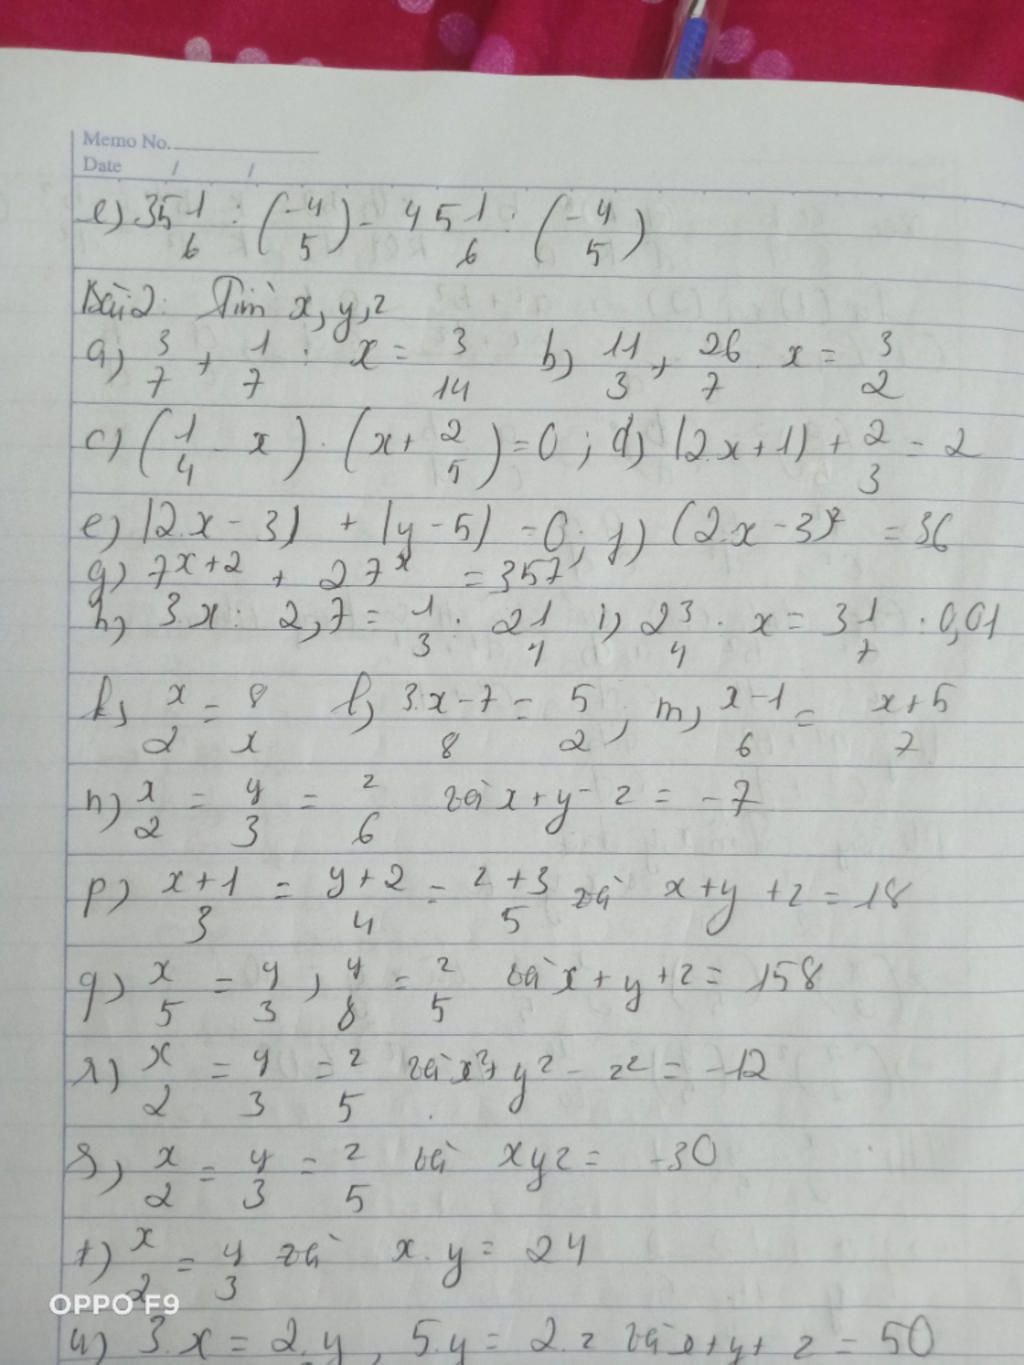 Memo No.
Date / /
e) 35 1/6 : (-4/5) - 45 1/6 : (-4/5)
Bài 2: Tìm x, y, z
a) 3/7 + 1/7 : x = 3/14 b) 11/3 + 26/7 x = 3/2
c) (1/4 - x) . (x + 2/5) = 0 ; d) |2.x + 1| + 2/3 = 2
e) |2.x - 3| + |y - 5| = 0 ; f) (2.x - 3)² = 36
g) 7^x+2 + 2 7^x = 357
h) 3.x : 2,7 = 1/3 : 2 1/4 i) 2 3/4 . x = 3 1/7 : 0,01
k, x/2 = 8/x l, 3.x - 7/8 = 5/2 ; m, x - 1/6 = x + 5/7
n) x/2 = y/3 = z/6 và x + y - z = -7
p) x + 1/3 = y + 2/4 = z + 3/5 và x + y + z = 18
q) x/5 = y/3 ; y/8 = z/5 và x + y + z = 158
r) x/2 = y/3 = z/5 và x² + y² - z² = -12
s, x/2 = y/3 = z/5 và xyz = -30
t) x/2 = y/3 và x.y = 24
OPPO F9
u) 3.x = 2.y , 5.y = 2.z và x + y + z = 50